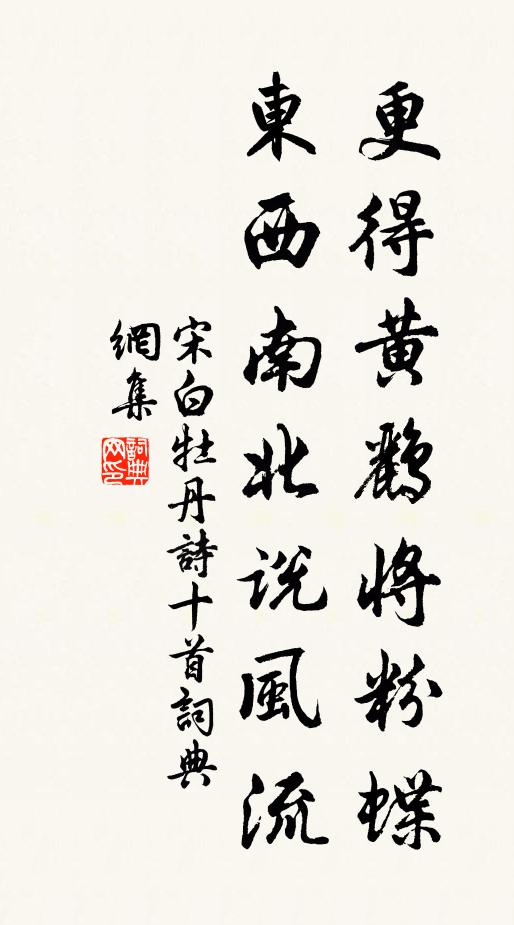 更得黃鸝將粉蝶
東西南北說風流
宋白牡丹詩十首詞典
網集
詞典
网印